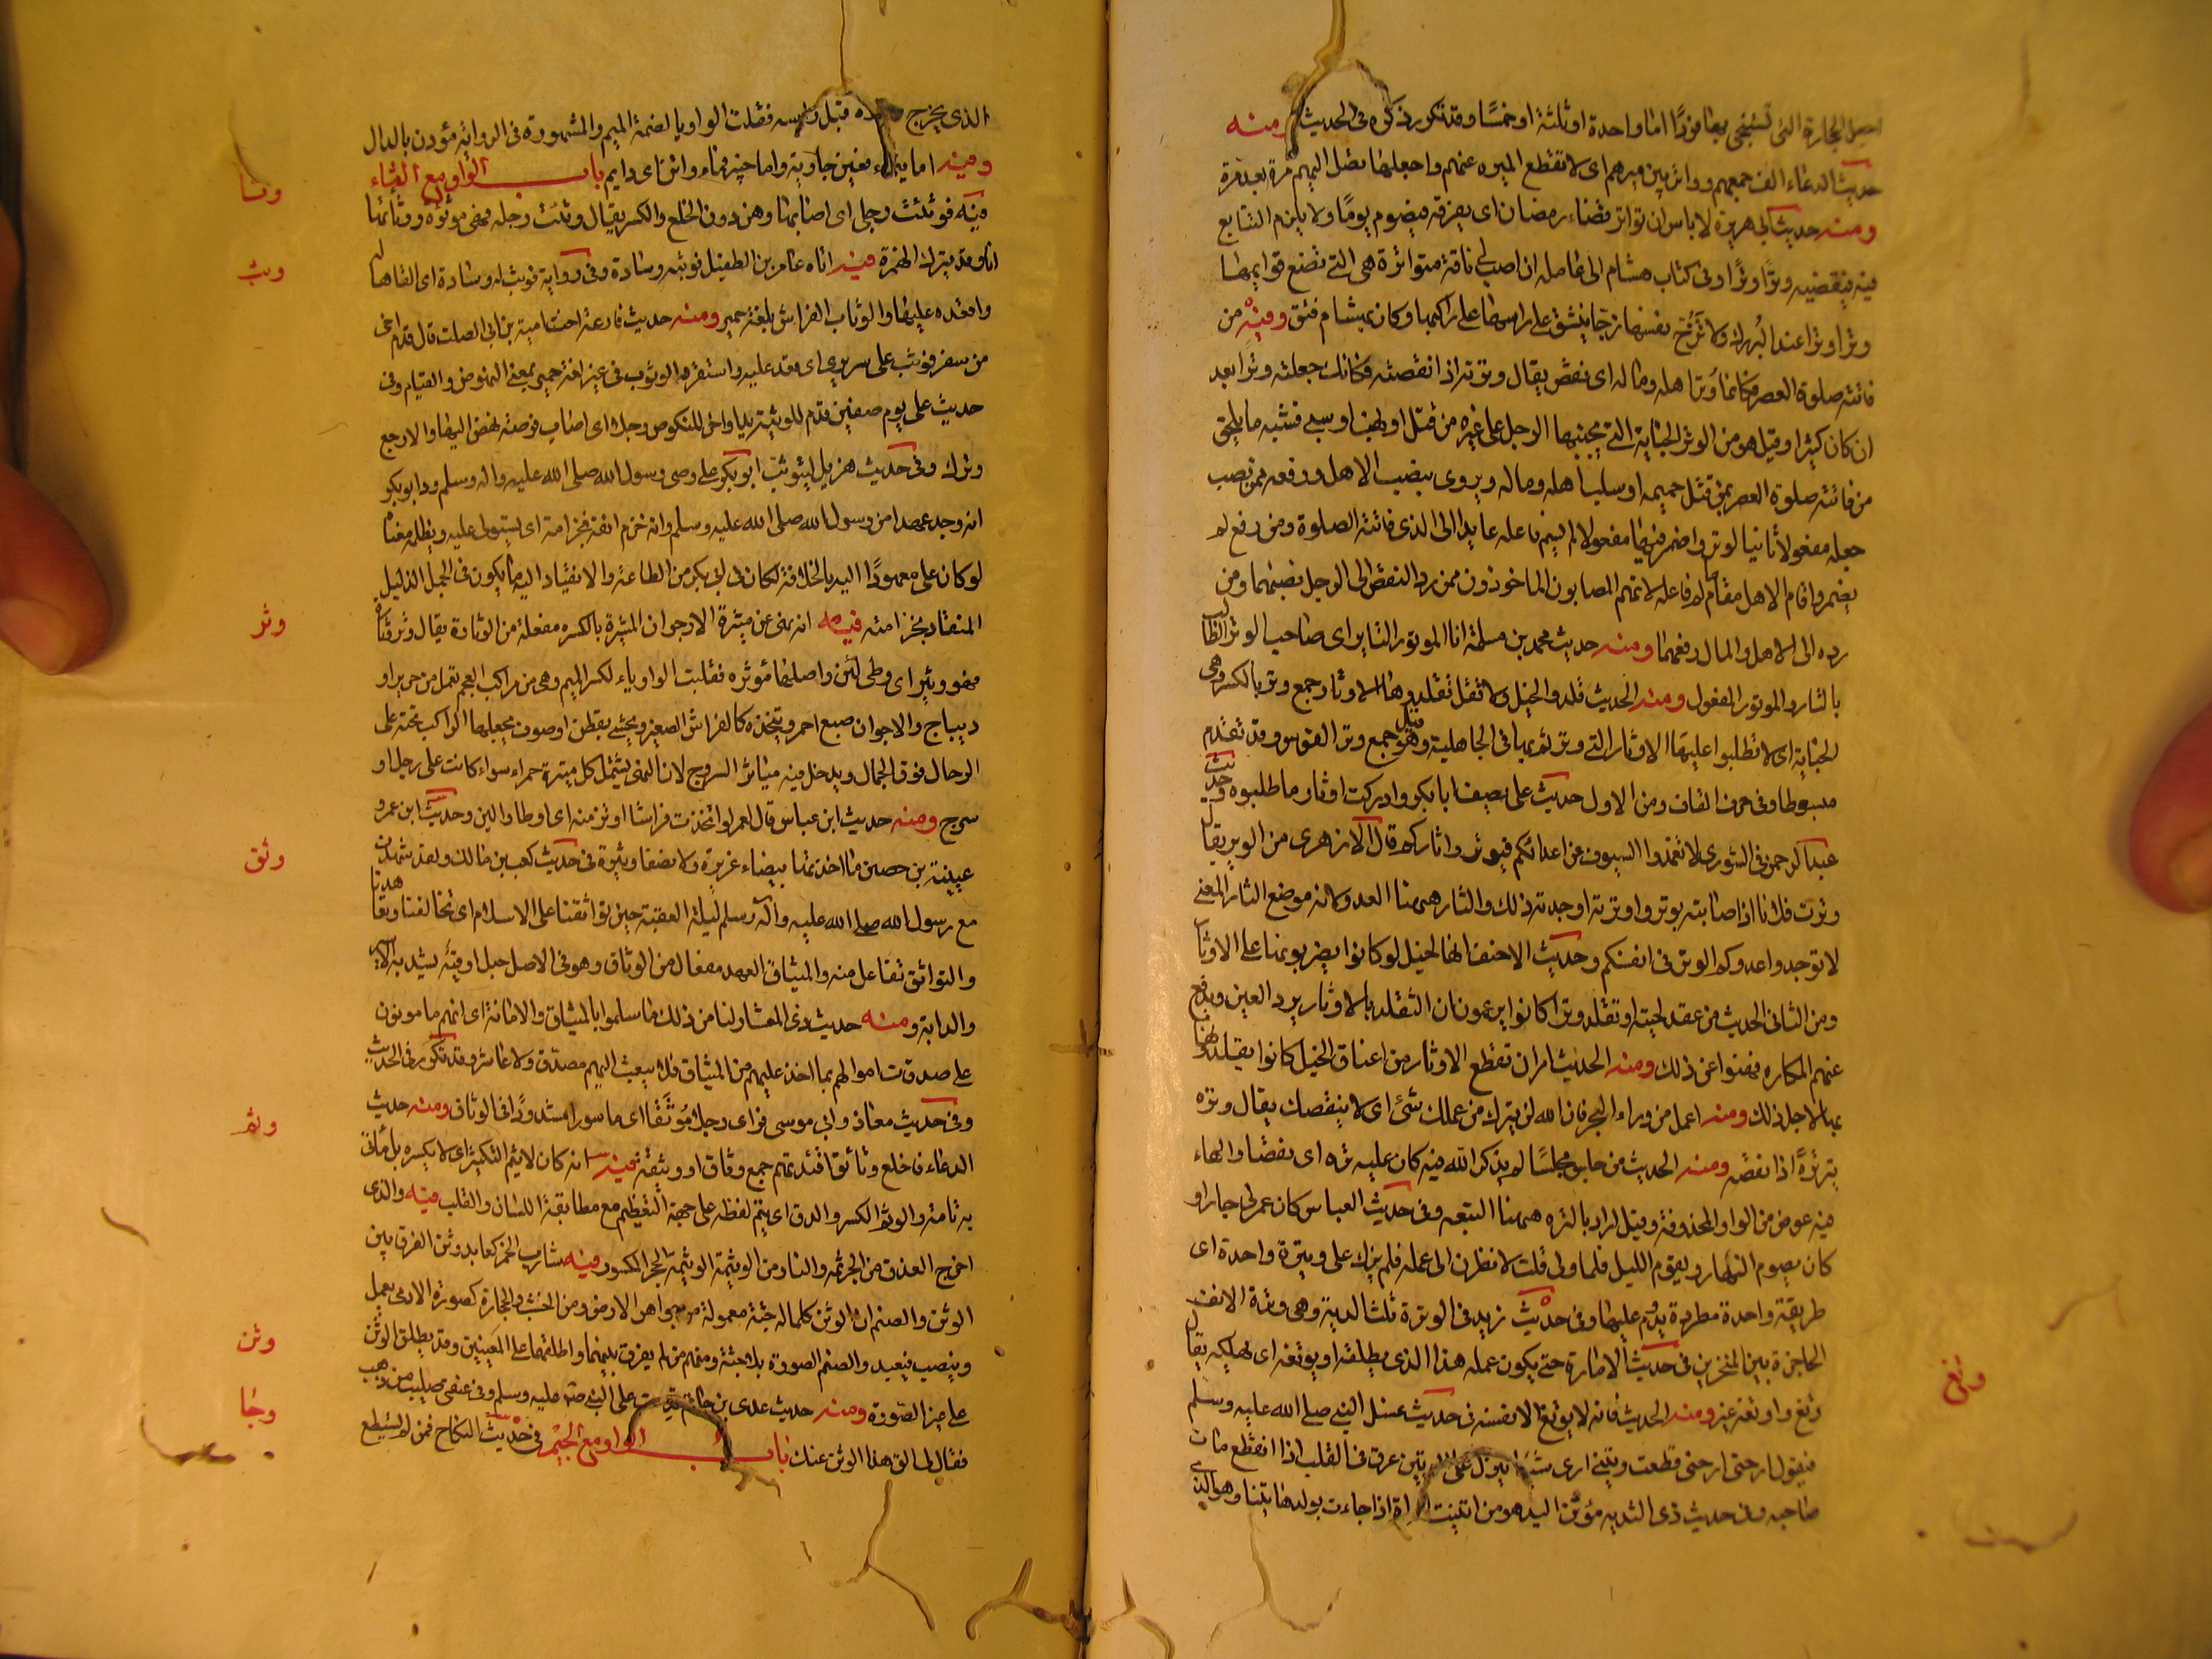 احجز الحجارة التى تستنجى بها فردًا اما واحدة او ثلثة او خمسًا وقد تكرر ذكره فى الحديث ومنه
حديث الدعاء الف جمعهم وواتر بين ميرهم اى لا تقطع الميره عنهم واجعلها تصل اليهم مرة بعد مرة
ومنه حديث ابى هريرة لا باس ان تواتر قضاء رمضان اى يفرقه فيصوم يومًا ولا يلزم التتابع
فيه فيقضيه وترًا وترًا وفى كتاب هشام الى عامله ان اصب لى ناقة متواترة هى التى تضع قوايمها
وترا وترا عند البروك ولا تزخ نفسها زجا فيشق على راكبها وكان بهشام فتق وفيه من
فاتته صلوة العصر فكانما وتر اهله وماله اى نقص يقال وترته اذا نقصته فكانك جعلته وترا بعد
ان كان كثيرا وقيل هو من الوتر الجناية التى يجنيها الرجل على غيره من قتل او نهب او سبى فشبه ما يلحق
من فاتته صلوة العصر بمن قتل حميمه او سلب اهله وماله ويروى بنصب الاهل ورفعه فمن نصب
جعله مفعولا ثانيا لوتر واضمر فيها مفعولا لم يسم فاعله عايدا الى الذى فاتته الصلوة ومن رفع لم
يضمر واقام الاهل مقام ما لم يسم فاعله لانهم المصابون الماخوذون فمن رد النقص الى الرجل نصبهما ومن
رده الى الاهل والمال رفعهما ومنه حديث محمد بن مسلمة انا الموتور الثاير اى صاحب الوتر الطالب
بالثار والموتور المفعول ومنه الحديث قلدوا الخيل ولا تقلدوها الاوتار جمع وتر بالكسر وهى
الجناية اى لا تطلبوا عليها الاوتار التى وترتم بها فى الجاهلية وقيل هو جمع وتر القوس وقد تقدم
مبسوطا فى حرف القاف ومن الاول حديث على يصف ابا بكر وادركت اوتار ما طلبوه وحديث
عبد الرحمن فى الشورى لا تغمدوا السيوف عن اعدائكم فتوتروا ثاركم قال الازهرى من الوتر يقال
وترت فلانا اذا اصابته بوتر واوترته اوجدته ذلك والثار ههنا العدو لانه موضع الثار المعنى
لا توجدوا عدوكم الوتر فى انفسكم وحديث الاحنف انها لخيل لو كانوا يضربونها على الاوتار
ومن الثانى الحديث من عقد لحيته او تقلد وترا كانوا يزعمون ان التقلد بالاوتار يرد العين ويدفع
عنهم المكاره فنهوا عن ذلك ومنه الحديث امر ان تقطع الاوتار من اعناق الخيل كانوا يقلدونها
بها لاجل ذلك ومنه اعمل من وراء البحر فان الله لن يترك من عملك شئ اى لا ينقصك يقال وتره
يتره ترةً اذا نقصه ومنه الحديث من جلس مجلسًا لم يذكر الله فيه كان عليه تره اى نقصا والهاء
فيه عوض من الواو المحذوفة وقيل اراد بالتره ههنا التبعه وفى حديث العباس كان عمر لى جارا و
كان يصوم النهار ويقوم الليل فلما ولى قلت لانظرن الى عمله فلم يزل على وتيرة واحدة اى
طريقة واحدة مطردة يدوم عليها وفى حديث زيد فى الوترة ثلث الدية وهى وترة الانف
الحاجزة بين المنخرين فى حديث الامارة حتى يكون عمله هذا الذى يطلقه او يوتغه اى يهلكه يقال
وتغ واوتغه غيره ومنه الحديث فانه لا يوتغ الا نفسه فى حديث غسل النبى صلى الله عليه وسلم
فيقول ارحنى ارحنى قطعت وتينى ارى شيئا ينزل على الوتين عرق فى القلب اذا انقطع مات
صاحبه وفى حديث ذى الثديه موتن اليد هو من ايتنت المراة اذا جاءت بولدها يتنا وهو الذى
وتغ
الذى يخرج قبل راسه فقلبت الواو يا لضمة الميم والمشهورة فى الرواية مؤدن بالدال
ومنه اما تيماء فعين جارية واما خيبر فماء واتن اى دايم باب الواو مع الثاء
فيه فوثئت رجلى اى اصابها وهن دون الخلع والكسر يقال وثئت رجله فهى موثؤه ووثاتها
انا وقد يترك الهمزة فيه اتاه عامر بن الطفيل فوثبه وسادة وفى رواية فوثب له وسادة اى القاها له
واقعده عليها والوثاب الفراش بلغة حمير ومنه حديث فارعة اخت امية بن ابى الصلت قال قدم اخى
من سفر فوثب على سريرى اى قعد عليه واستقر والوثوب فى غير لغة حمير بمعنى النهوض والقيام وفى
حديث على يوم صفين قدم للوثبة يدا واخر للنكوص رجلا اى اصاب فرصة نهض اليها والا رجع
وترك وفى حديث هزيل ايتوثب ابو بكر على وصى رسول الله صلى الله عليه واله وسلم ود ابو بكر
انه وجد عهدا من رسول الله صلى الله عليه وسلم وانه خزم انفه بخزامة اى يستولى عليه ويظلمه معناه
لو كان على معهودًا اليه بالخلافة لكان فى ابى بكر من الطاعة والانقياد اليه ما يكون فى الجمل الذليل
المنقاد بخزامته فيه انه نهى عن ميثرة الارجوان الميثرة بالكسره مفعلة من الوثارة يقال وثر وثارة
فهو وثير اى وطى لين واصلها موثره فقلبت الواو ياء لكسر الميم وهى من مراكب العجم تعمل من حرير او
ديباج والارجوان صبغ احمر ويتخذه كالفراش الصغير ويحشى بقطن او صوف يجعلها الراكب تحته على
الرحال فوق الجمال ويدخل فيه مياثر السروج لان النهى يشتمل كل ميثرة حمراء سواء كانت على رحل او
سرج ومنه حديث ابن عباس قال لعمر لو اتخذت فراشا اوثر منه اى اوطا والين وحديث ابن عمر و
عيينة بن حصين ما اخذتها بيضاء غريرة ولا نصفا وثيرة فى حديث كعب بن مالك ولقد شهدت
مع رسول الله صلى الله عليه وآله وسلم ليلة العقبة حين تواثقنا على الاسلام اى تحالفنا وتعاهدنا
والتواثق تفاعل منه والميثاق العهد مفعال من الوثاق وهو فى الاصل حبل او قيد يشد به الاسير
والدابة ومنه حديث ذى المشعار لنا من ذلك ما سلموا بالميثاق والامانة اى انهم مامونون
على صدقات اموالهم بما اخذ عليهم من الميثاق فلا يبعث اليهم مصدق ولا عاشر وقد تكرر فى الحديث
وفى حديث معاذ وابى موسى فراى رجلا مُوثَقًا اى ماسورا مشدودًا فى الوثاق ومنه حديث
الدعاء فاخلع وثائق افئدتهم جمع وثاق او وثيقة فيه انه كان لا يثم التكبير اى لا يكسره بل ياتى
به تامة والوثم الكسر والدق اى يتم لفظه على جهة التعظيم مع مطابقة اللسان والقلب فيه والذى
اخرج العذق من الجرثمه والنار من الوثيمة الوثيمة الحجر المكسور فيه شارب الخمر كعابد وثن الفرق بين
الوثن والصنم ان الوثن كلما له جثة معمولة من جواهر الارض ومن الخشب والحجارة كصورة الادمى يعمل
وينصب فيعبد والصنم الصورة بلا جثة ومنهم من لم يفرق بينهما واطلقهما على المعنيين وقد يطلق الوثن
على غير الصورة ومنه حديث عدى بن حاتم قدمت على النبى صلى الله عليه وسلم وفى عنقى صليب من ذهب
فقال لى الق هذا الوثن عنك باب الواو مع الجيم فى حديث النكاح فمن لم يستطع
وثا
وثب
وثر
وثق
وثم
وثن
وجا